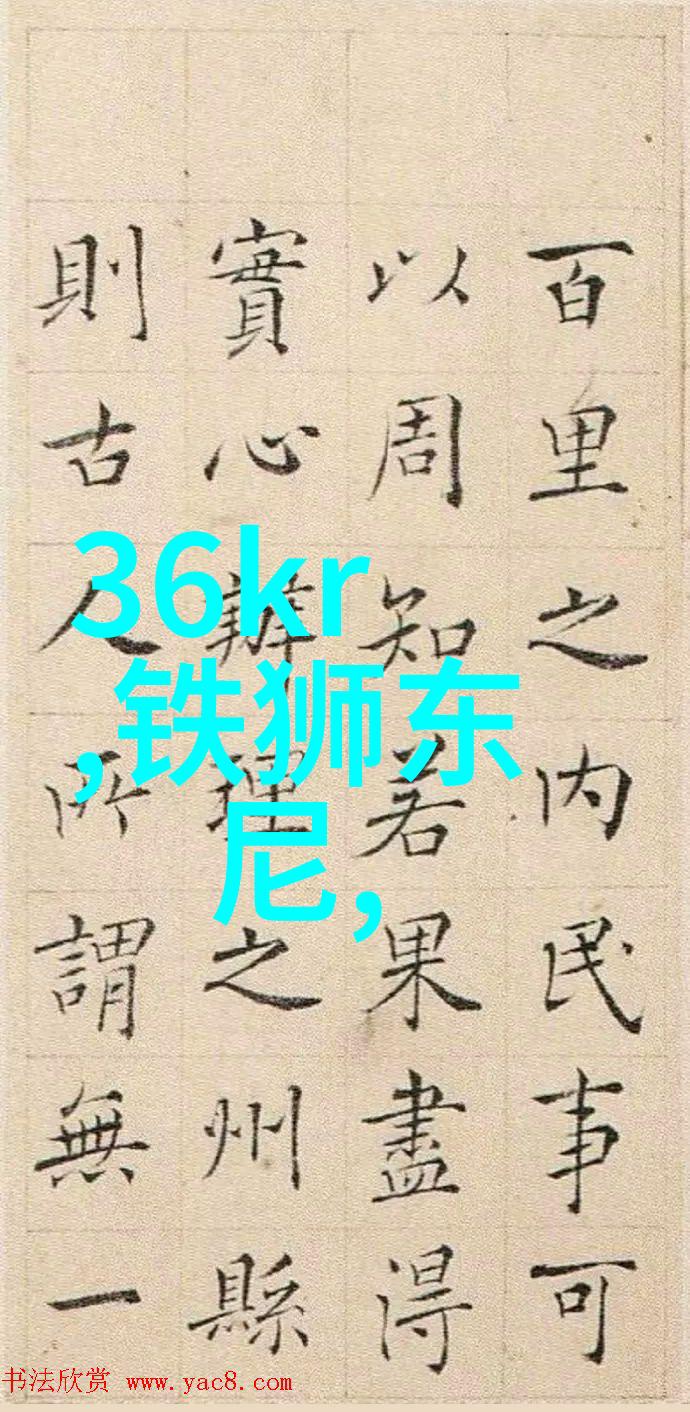 百里之内民事可
以周知若果盡得
實心辦理之州縣
則古人所謂無一
36kr
,铁狮东
尼,
书法欣赏 www.yac8.com